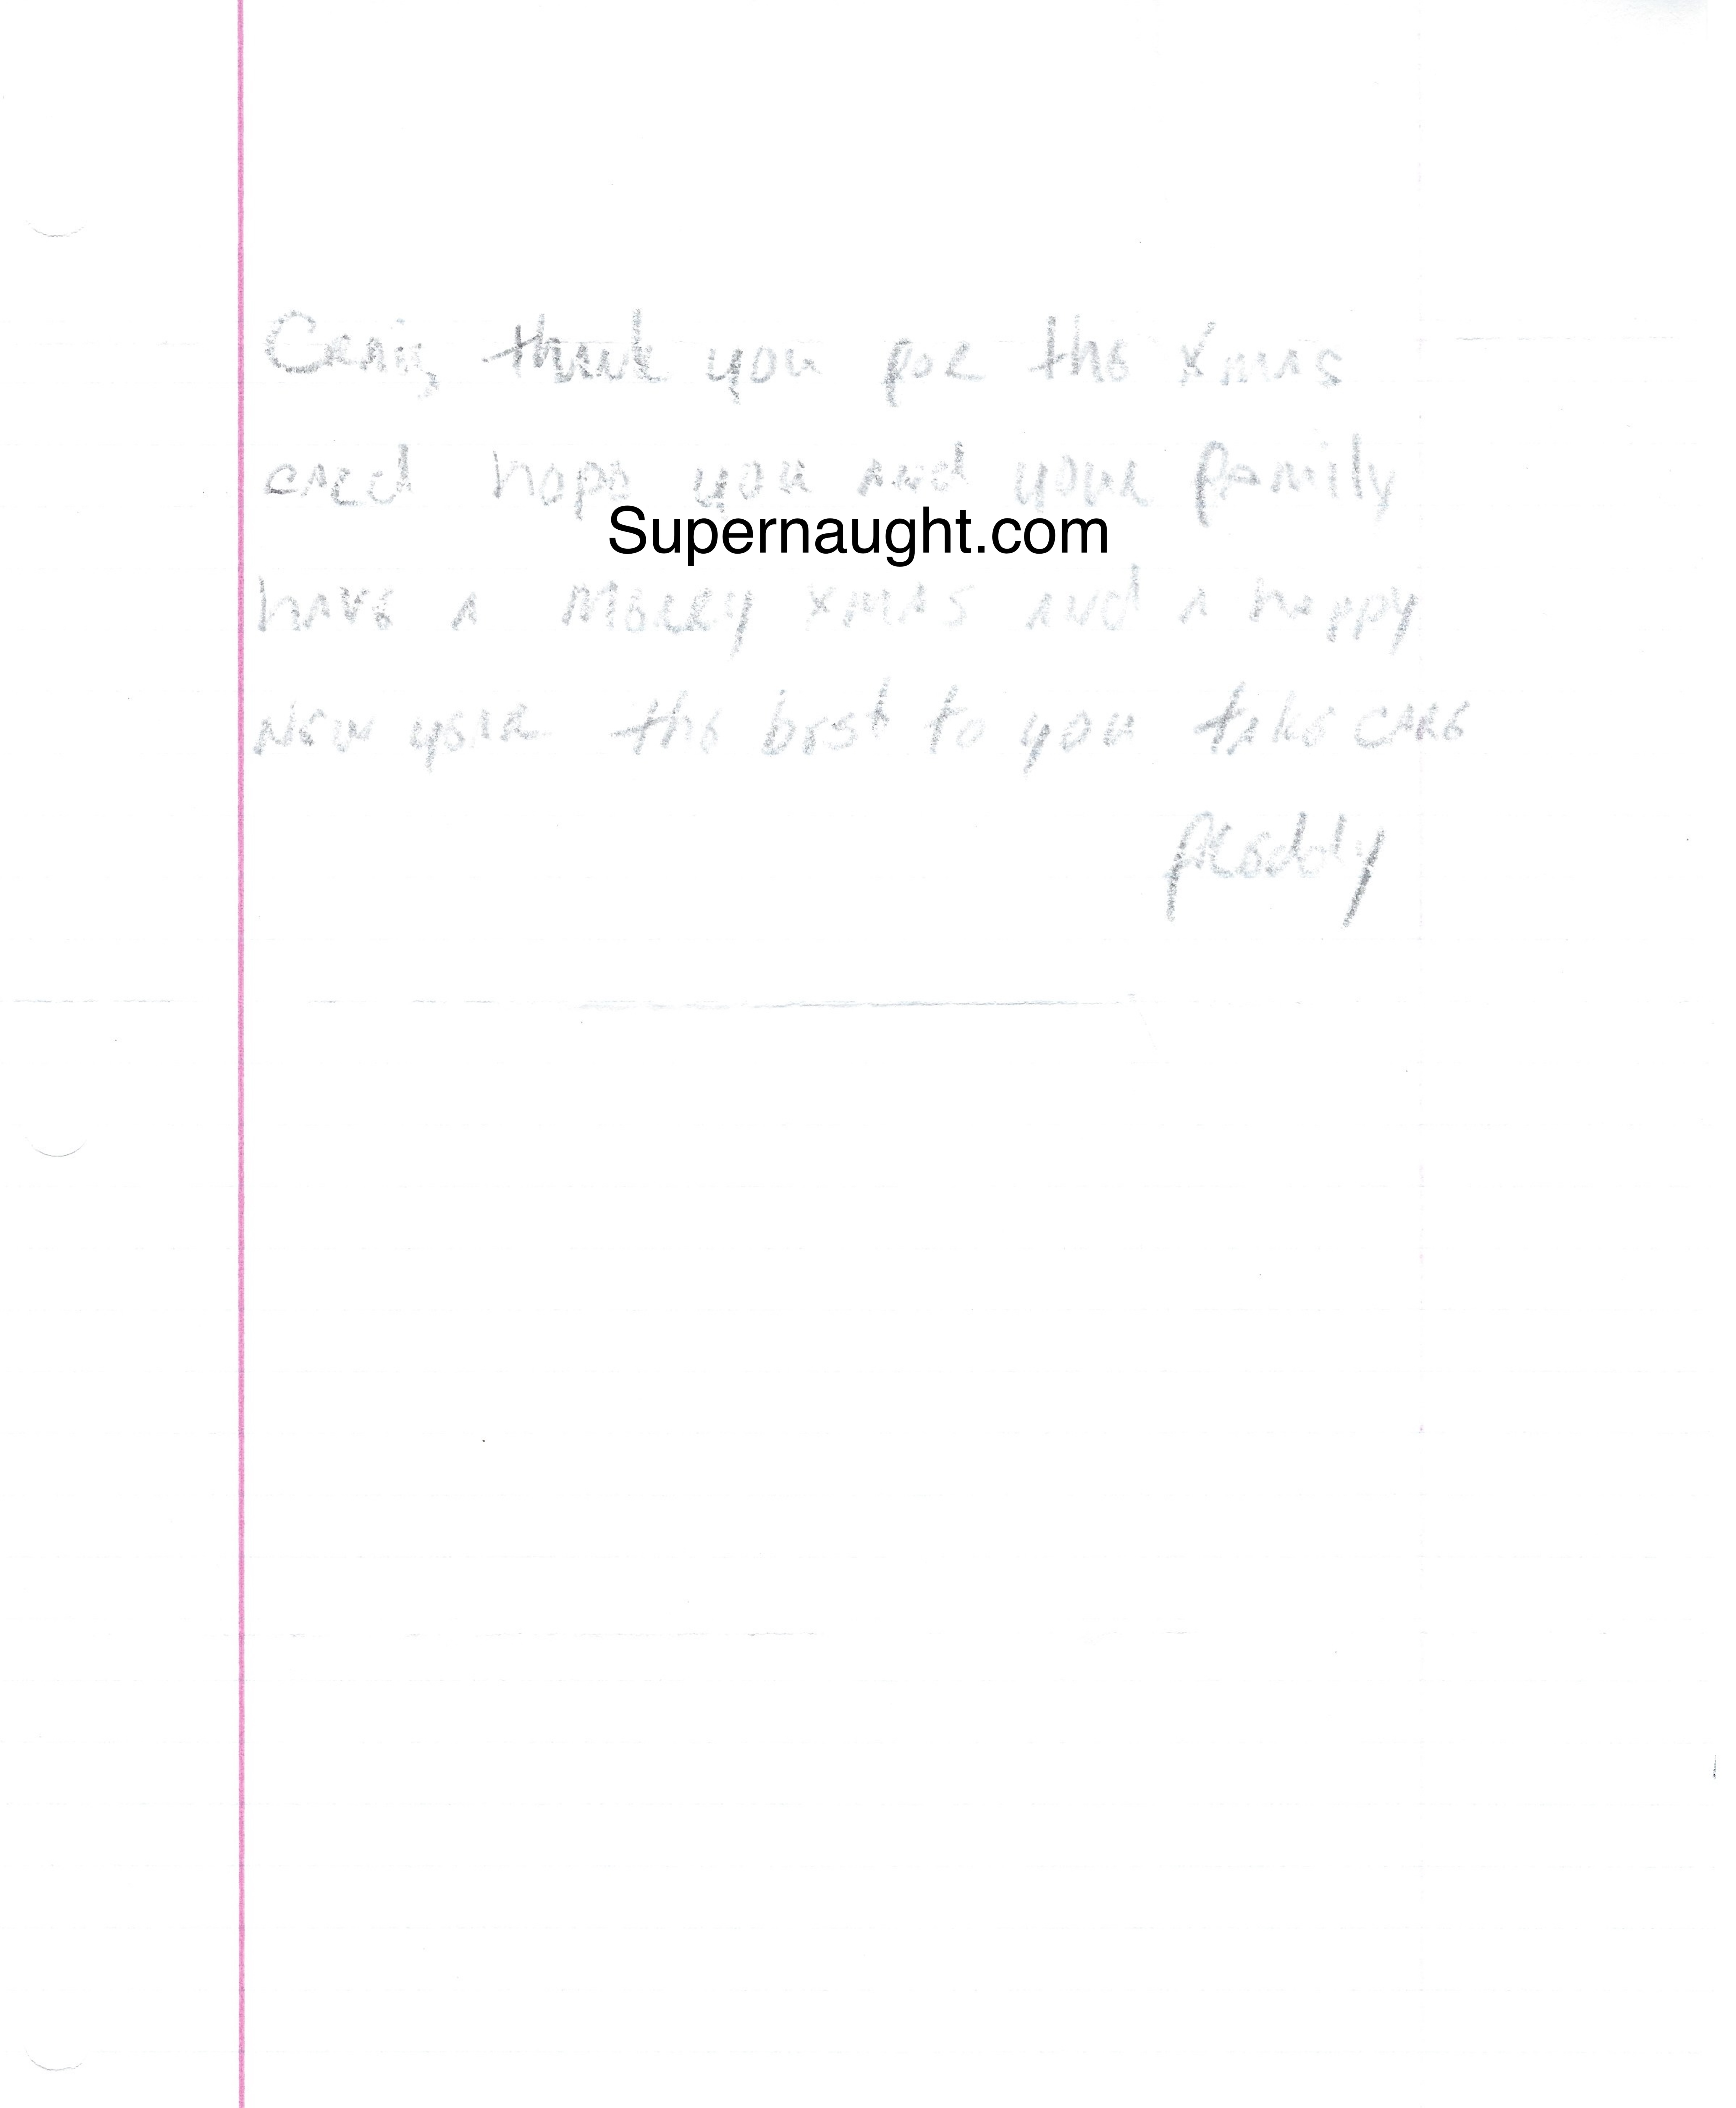 thank you for the Xmas
card hope you and your family
Supernaught.com
have a Merry xmas and a happy
New year the best to you take care
freddy